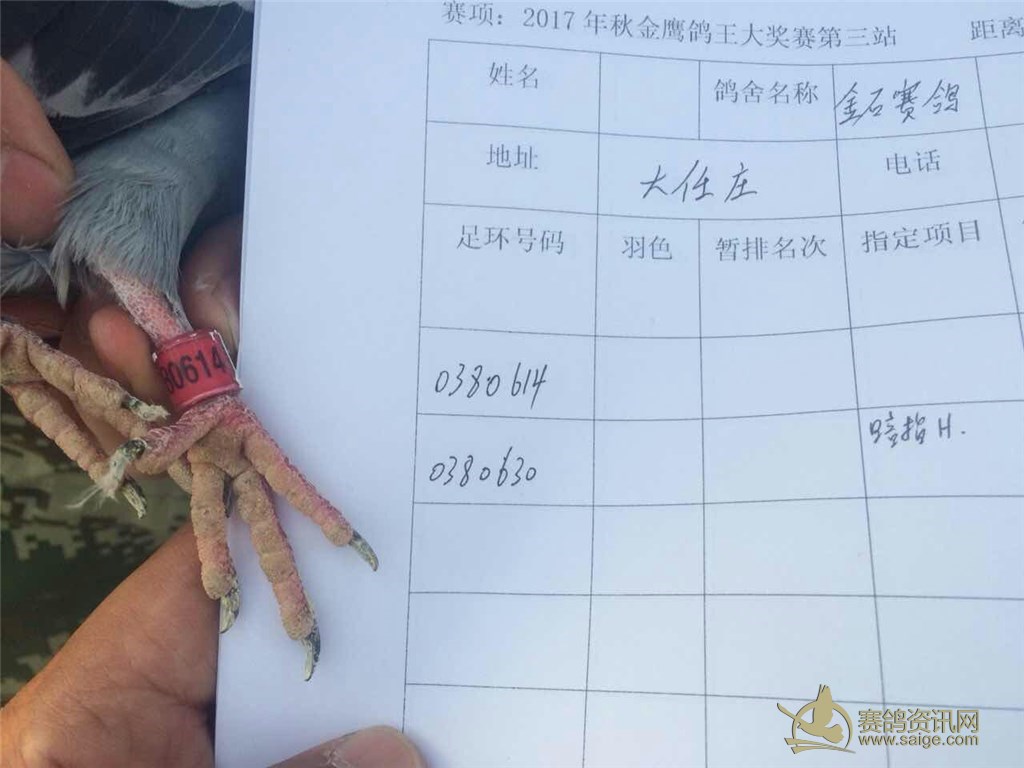 赛项：2017年秋金鹰鸽王大奖赛第三站 距离
姓名 鸽舍名称 金石赛鸽
地址 大任庄 电话
足环号码 羽色 暂排名次 指定项目
80614
0380614
0380630 暗指H.
赛鸽资讯网
www.saige.com